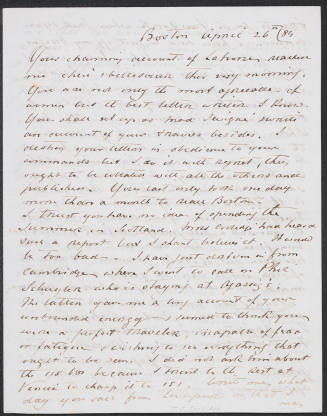 Boston April 26th /86
Your charming account of Lahore reached
me this very morning.
You are not only the most agreeable of
women but the best letter writer I know.
You shall set up as Mad Sevigné &
an account of your travels besides. I
destroy your letters in obedience to your
commands but I do it with regret, they
ought to be collected with all the others and
published. You cast only both one day
more than a month to reach Boston.
I trust you have no idea of spending the
Summer in Scotland. Mrs had heard
such a report but I shant believe it. It would
be too bad. I have just driven in from
Cambridge where I went to call on Miss
Schuyler who is staying at
The latter gave me a long account of your
unbounded energy. I seemed to think you
were a perfect traveler, incapable of fear
or fatigue & wishing to see everything that
ought to be seen. I did not ask him about
the because I went to the at
Venice to change it to 15!
day you sail from Liverpool so that I
may